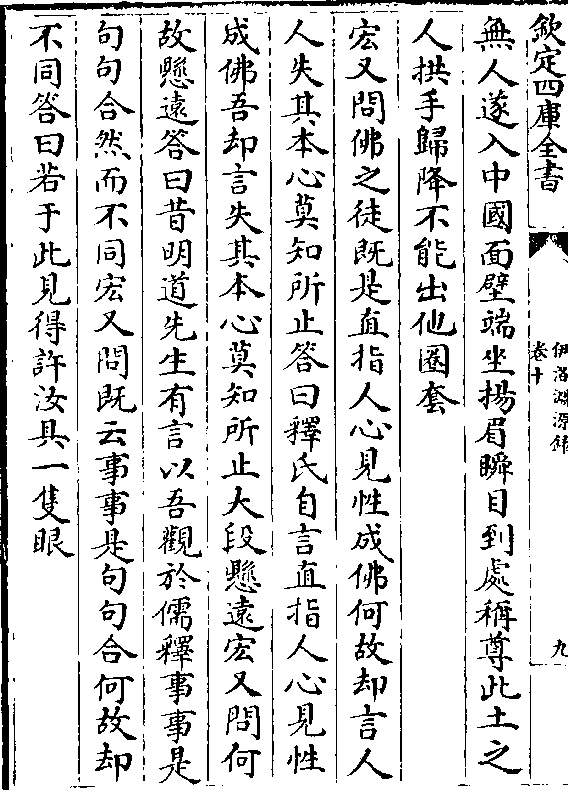 欽定四庫全書
伊洛淵源錄
卷十
九
無人遂入中國面壁端坐揚眉瞬目到處稱尊此土之
人拱手歸降不能出他圈套
宏又問佛之徒既是直指人心見性成佛何故却言人
人失其本心莫知所止答曰釋氏自言直指人心見性
成佛吾却言失其本心莫知所止大段懸遠宏又問何
故懸遠答曰昔明道先生有言以吾觀於儒釋事事是
句句合然而不同宏又問既云事事是句句合何故却
不同答曰若于此見得許汝具一隻眼